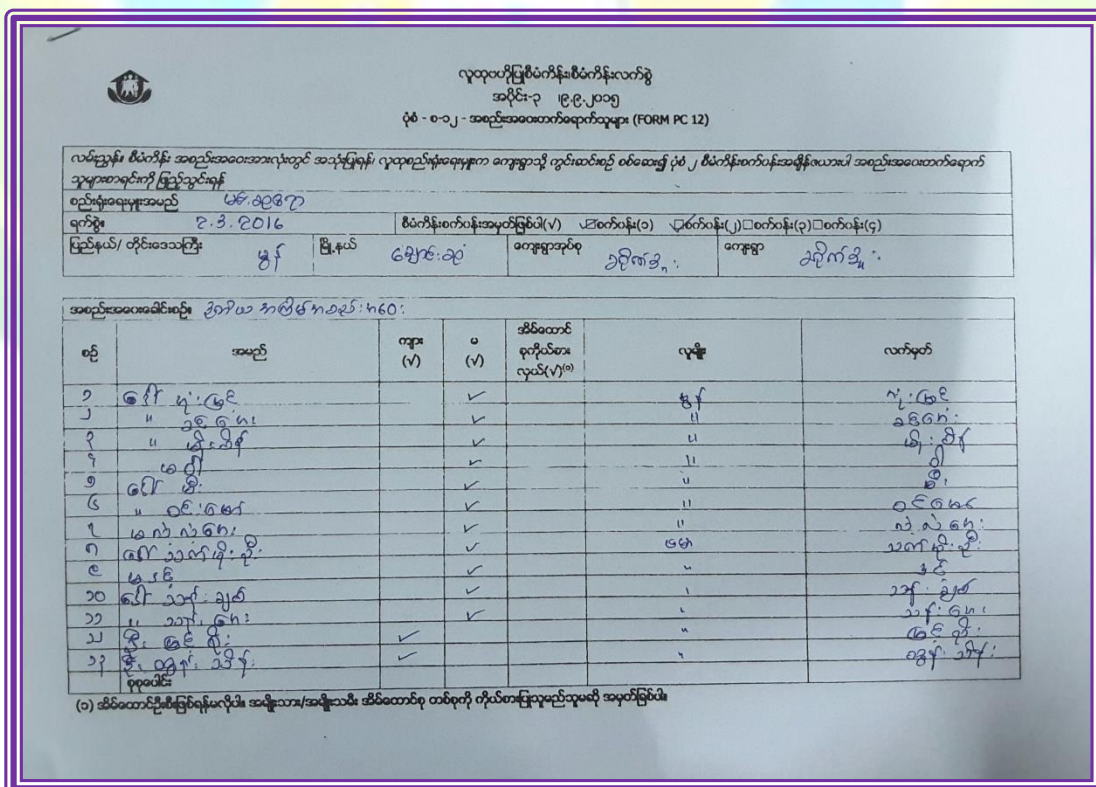 လူထုဗဟိုပြုစီမံကိန်း၊စီမံကိန်းလက်စွဲ
အပိုင်း-၃ ၊၉.၉.၂၀၁၅
ပုံစံ - စ-၁၂ - အစည်းအဝေးတက်ရောက်သူများ (FORM PC 12)
လမ်းညွှန်။ စီမံကိန်း အစည်းအဝေးအားလုံးတွင် အသုံးပြုရန်၊ လူထုစည်းရုံးရေးမှူးက ကျေးရွာသို့ ကွင်းဆင်းစဉ် စစ်ဆေး၍ ပုံစံ ၂ စီမံကိန်းစက်ဝန်းအချိန်ဇယားပါ အစည်းအဝေးတက်ရောက်
သူများစာရင်းကို ဖြည့်သွင်းရန်
စည်းရုံးရေးမှူးအမည်
ရက်စွဲ။ 2.3.2016 စီမံကိန်းစက်ဝန်းအမှတ်ခြစ်ပါ(√) ☑စက်ဝန်း(၁) ☑စက်ဝန်း(၂)□စက်ဝန်း(၃)□စက်ဝန်း(၄)
ပြည်နယ်/ တိုင်းဒေသကြီး မွန် မြို့နယ် ချောင်းဆုံ ကျေးရွာအုပ်စု ကျေးရွာ
အစည်းအဝေးခေါင်းစဉ်။ ဒုတိယ အကြိမ် အစည်းအဝေး
စဉ် အမည် ကျား (√) မ (√) အိမ်ထောင်စုကိုယ်စားလှယ်(√)⁽¹⁾ လူမျိုး လက်မှတ်
၁ ဒေါ် လုံးမြင့် ✓ မွန် လုံးမြင့်
၂ " ✓ "
၃ " ✓ "
၄ မ ဝါ ✓ " ဝါ
၅ ဒေါ် ✓ "
၆ " ဝင်းမော် ✓ " ဝင်းမော်
၇ မ လဲ့လဲ့ဌေး ✓ " လဲ့လဲ့ဌေး
၈ ဒေါ် ✓ ဗမာ
၉ မ ✓ "
၁၀ ဒေါ် သန်းချစ် ✓ သန်းချစ်
၁၁ " သန်းဌေး ✓ " သန်းဌေး
၁၂ ဦး မြင့်စိုး ✓ " မြင့်စိုး
၁၃ ဦး ထွန်းသိန်း ✓ " ထွန်းသိန်း
စုစုပေါင်း
(၁) အိမ်ထောင်ဦးစီးဖြစ်ရန်မလိုပါ။ အမျိုးသား/အမျိုးသမီး အိမ်ထောင်စု တစ်စုကို ကိုယ်စားပြုသူမည်သူမဆို အမှတ်ခြစ်ပါ။